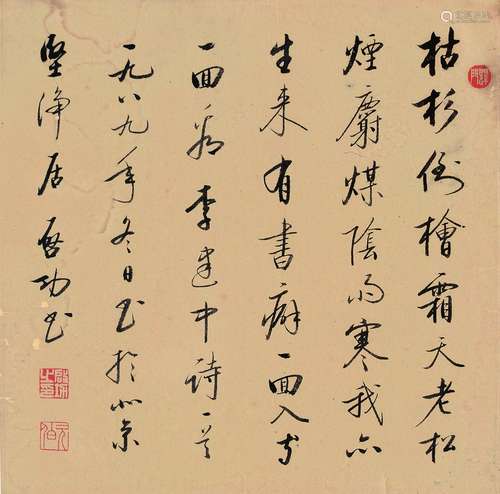 枯杉倒檜霜天老松
煙麝煤陰雨寒我亦
生来有書癖一回入寺
一回看李建中詩一首
一九八九年冬日书於北京
堅净居启功书